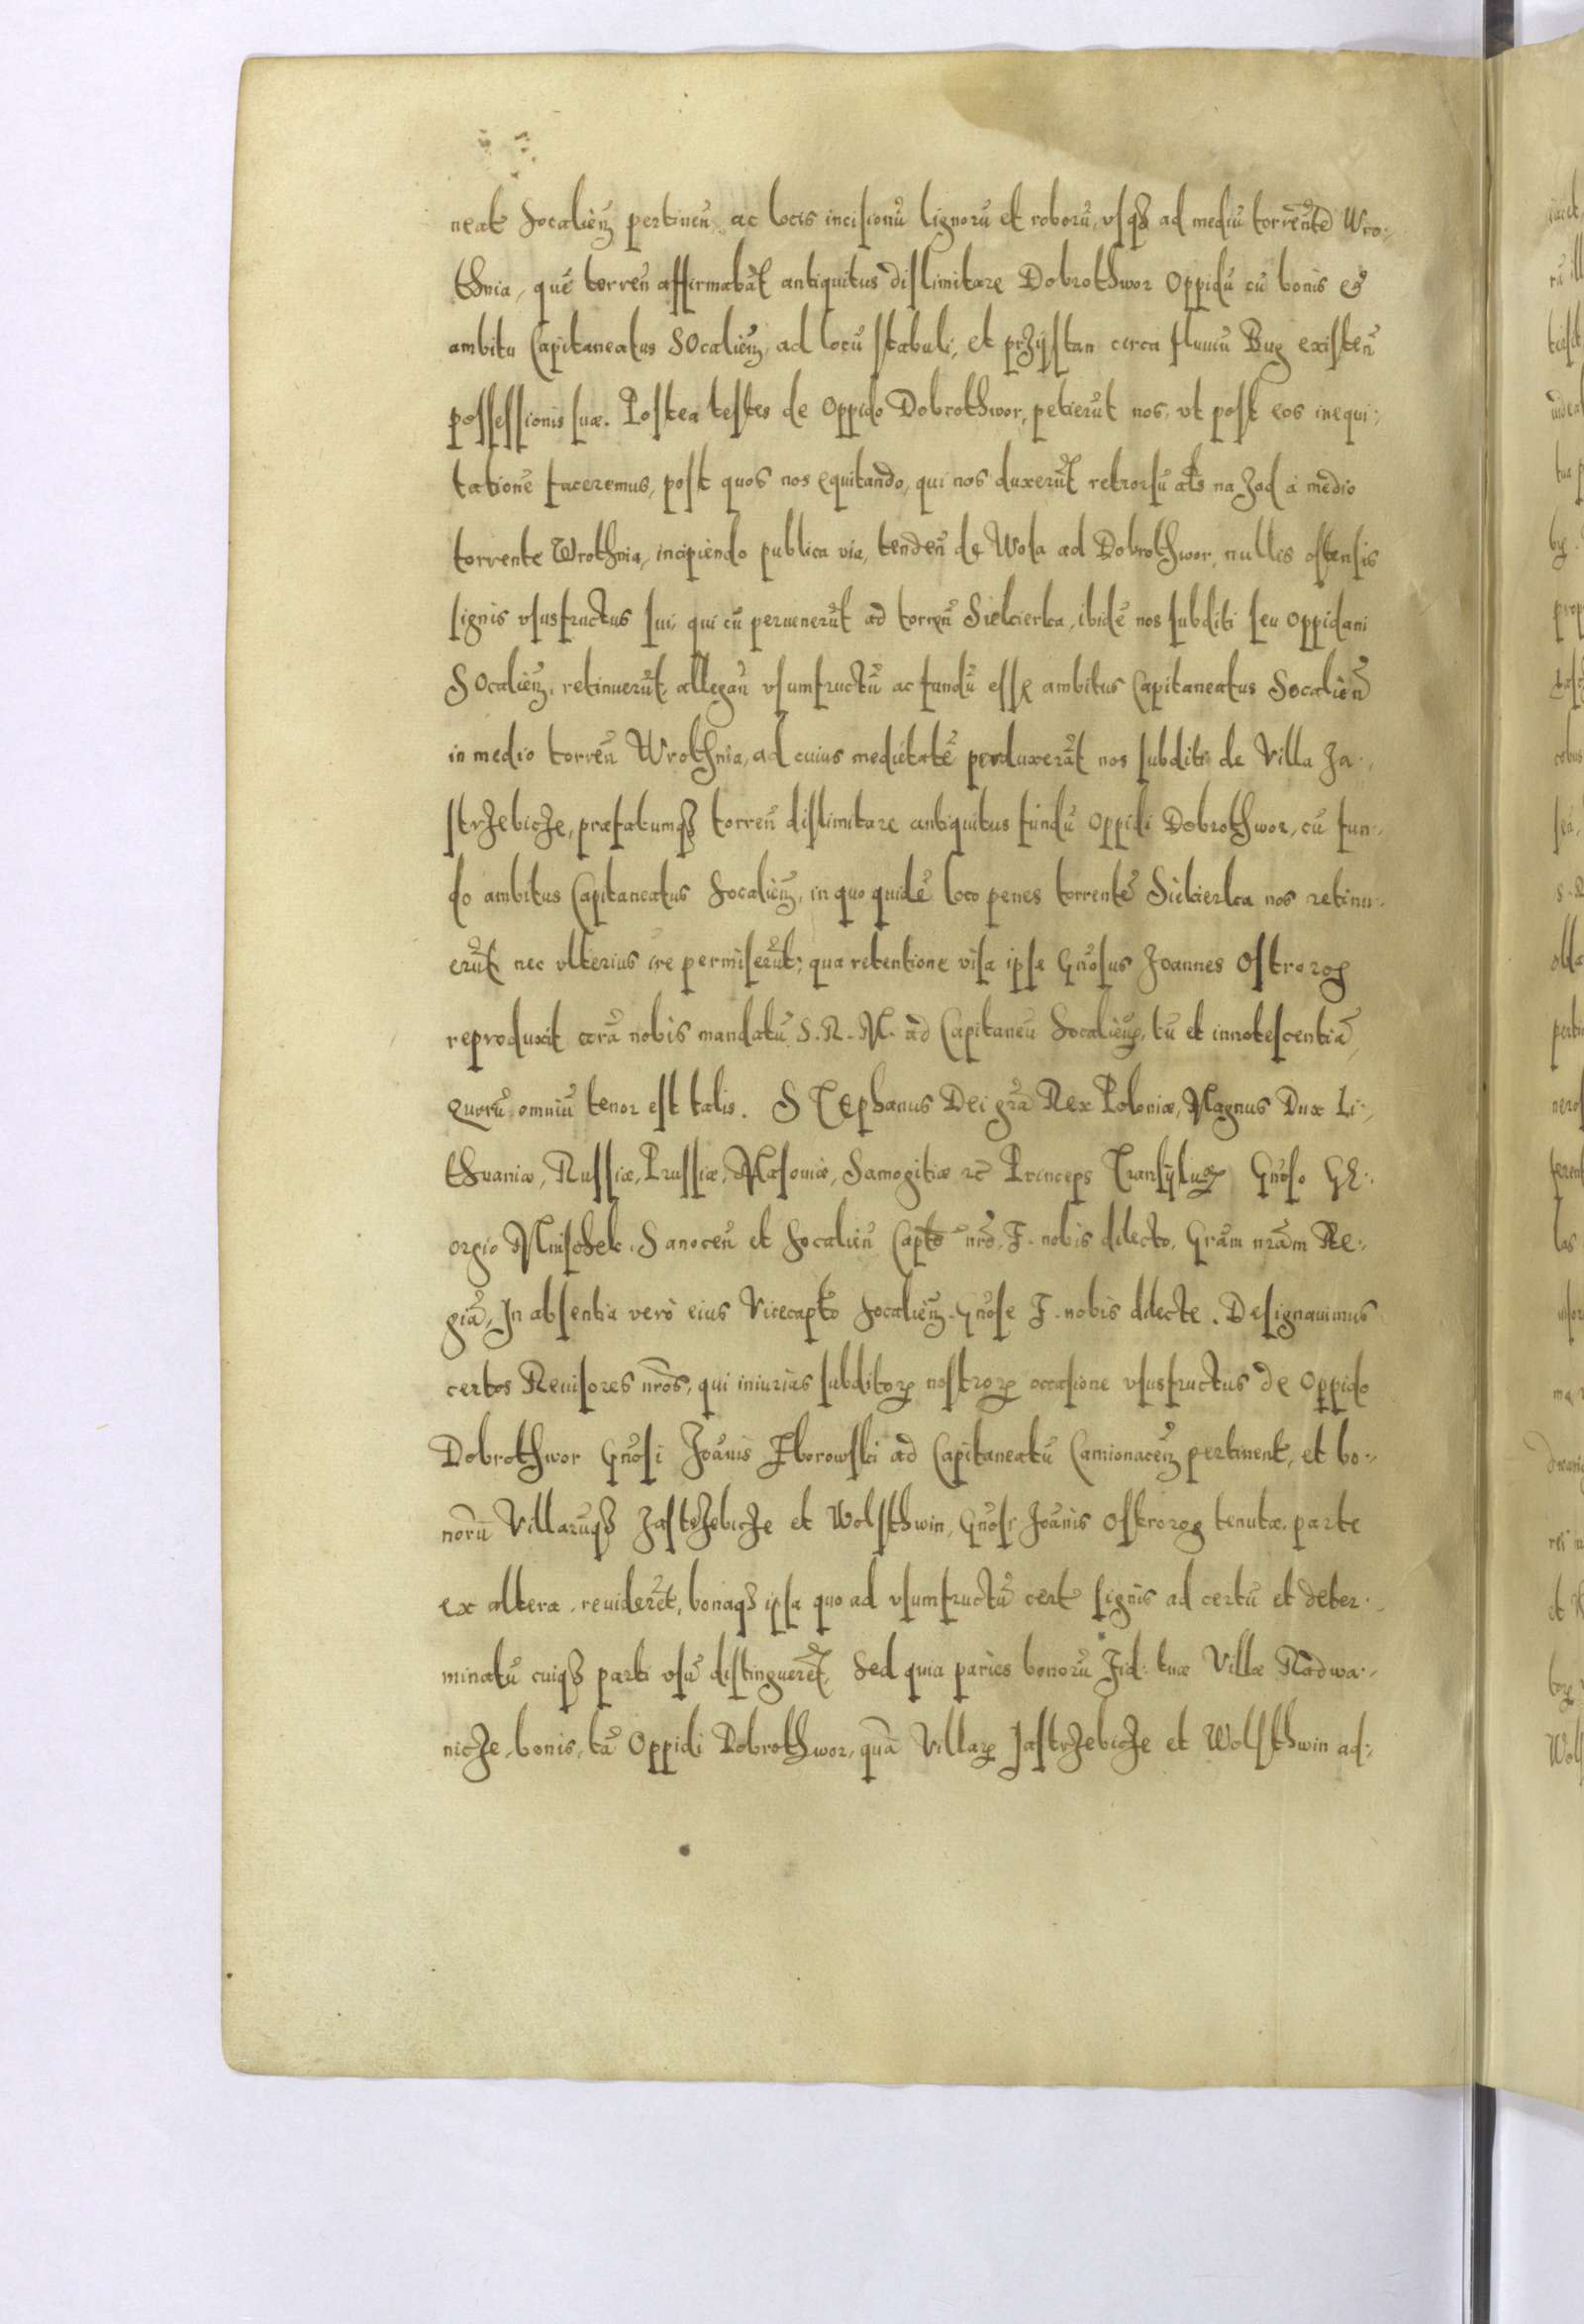 neat Socalieñ pertineñ ac locis incisionũ lignorũ et roborũ, vsq₃ ad mediũ torrentẽ Wro:
thnia, quẽ torreñ affirmabãt antiquitus dislimitare Dobrothwor Oppidũ cũ bonis et
ambitu Capitaneatus SOcalieñ, ad locũ stabuli, et przÿstan circa fluuiũ Bug existeñ
possessionis suæ. Postea testes de Oppido Dobrothwor, petierũt nos, vt post eos inequi:
tationẽ faceremus, post quos nos equitando, qui nos duxerũt retrorsũ als na zad á medio
torrente Wrothnia, incipiendo publica via, tendeñ de Wola ad Dobrothwor, nullis ostensis
signis vsusfructus sui, qui cũ peruenerũt ad torreñ Sielcierka, ibidẽ nos subditi seu Oppidani
SOcalieñ, retinuerũt, allegañ vsumfructũ ac fundũ esse ambitus Capitaneatus Socalieñ
in medio torreñ Wrothnia, ad cuius medietatẽ produxerãt nos subditi de Villa Ja:
strzebicze, præfatumq₃ torreñ dislimitare antiquitus fundũ Oppidi Dobrothwor, cũ fun:
do ambitus Capitaneatus Socalieñ, in quo quidẽ loco penes torrentẽ Sielcierka nos retinu:
erũt nec vlterius ire permiserũt; qua retentione visa ipse Gñosus Joannes Ostrorog
reproduxit corã nobis mandatũ S. R. M. ad Capitaneũ Socalieñ, tũ et innotescentiã,
quorũ omniũ tenor est talis. STephanus Dei grã Rex Poloniæ, Magnus Dux Li:
thuaniæ, Russiæ, Prussiæ, Masouiæ, Samogitiæ etc̃ Princeps Transÿluꝗ Gñoso GE:
orgio Mnischek Sanoceñ et Socalieñ Capto nrõ, F. nobis dilecto, Grãm nrãm Re:
giã, In absentia verò eius Vicecapto Socalieñ. Gñose F. nobis dilecte. Designauimus
certos Reuisores nrõs, qui iniurias subditoꝝ nostroꝝ occasione vsusfructus de Oppido
Dobrothwor Gñosi Joãnis Zborowski ad Capitaneatũ Camionaceñ pertinent, et bo:
norũ Villarũq₃ Jastrzebicze et Wolsthwin, Gñosi Joãnis Ostrorog tenutæ, parte
ex altera, reuiderẽt, bonaq₃ ipsa quo ad vsumfructũ cert signis ad certũ et deter:
minatũ cuiq₃ parti vsũ distinguerẽt, Sed quia paries bonorũ Fid: tuæ Villæ Nadwa:
nicze, bonis, tã Oppidi Dobrothwor, quã Villaꝝ Jastrzebicze et Wolsthwin ad: